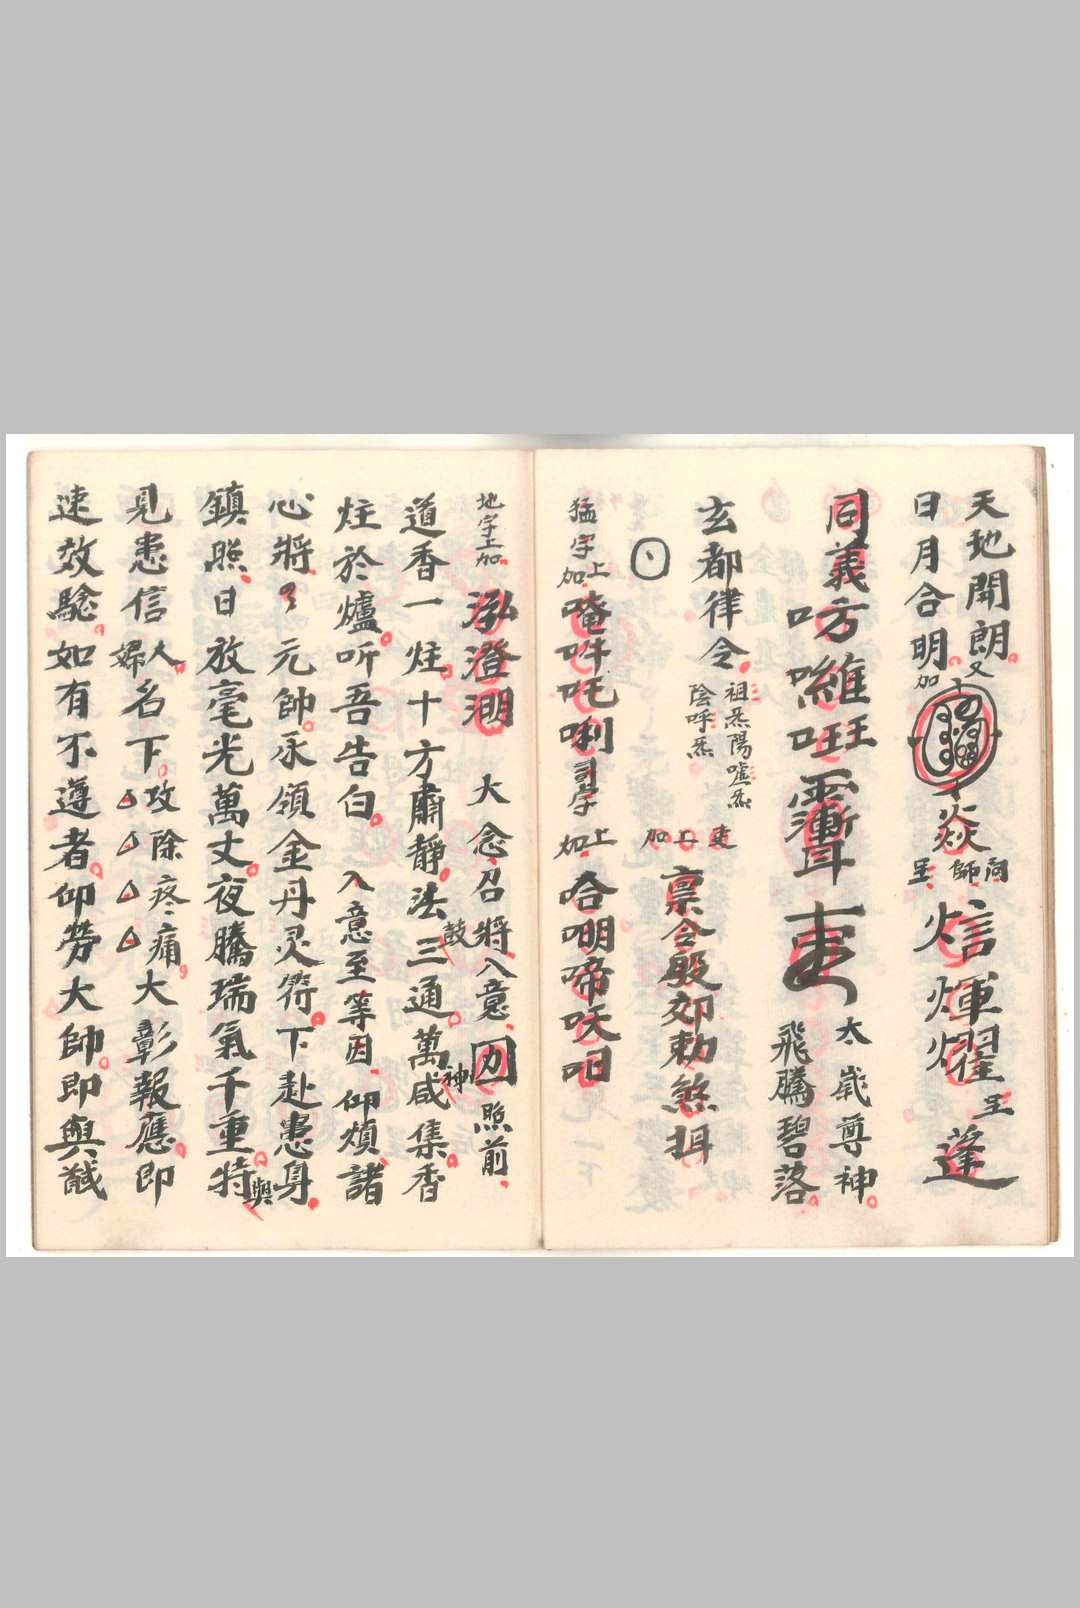 天地開朗又
日月合明加
焱
商師
呈
焒煇燿呈
蓬
同義
㕫𠼦㕵
太歲尊神
飛騰碧落
玄都律令
祖炁陽嘘炁
陰呼炁
叓上加
禀令
勅煞
猛字上加
唵吽吒唎
司字上加
哈
地字上加
泓澄淵
大念召將入意
照前
道香一炷十方肅靜法鼓三通萬神咸集香
炷於爐听吾告白入意至等因仰煩諸
心將了元帥永領金丹灵符下赴患身
鎮照日放毫光萬丈夜騰瑞氣千重特與
見患信人婦名下攻除疼痛大彰報應即
速效驗如有不遵者仰勞大師即與馘